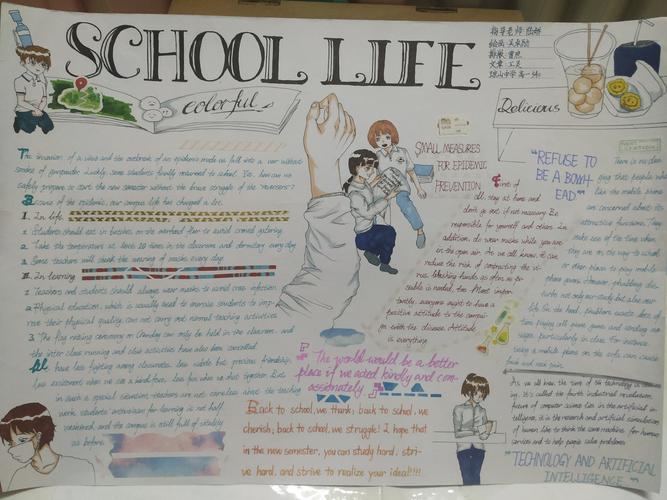 SCHOOL LIFE
colorful
Delicious
The invasion of a virus and the outbreak of an epidemic made us fall into a war without
smoke of gunpowder. Luckily, some students finally returned to school. So, how can we
safely prepare to start the new semester without the brave struggle of the
Because of the epidemic, our campus life has changed a lot.
I. In life
1. Students should eat in batches on the
2. Take the temperature at least 10 times in the classroom and dormitory every day
3. Some teachers will check the wearing of masks every day
II. In learning
1. Teachers and students should always wear masks to avoid cross infection.
2. Physical education, which is usually used to exercise students to imp-
rove their physical quality, can not carry out normal teaching activities.
3. The flag raising ceremony on Monday can only be held in the classroom, and
the inter class running and other activities have also been cancelled.
We have less fighting among classmates, less
in such a special situation, teachers are not careless about the teaching
work, students' enthusiasm for learning is not half
weakened, and the campus is still full of vitality
as before.
SMALL MEASURES
FOR EPIDEMIC
PREVENTION
First of
all, stay at home and
don't go out if not necessary. Be
responsible for yourself and others. In
addition, do wear masks while you are
in the open air. As we all know, it can
reduce the risk of contracting the vi-
rus. Washing hands as often as pos-
sible is needed, too. Most impor-
tantly, everyone ought to have a
positive attitude to the campai-
gn with the disease. Attitude
is everything.
"REFUSE TO
BE A BOWH-
EAD"
There is no den-
ying that people who
like the mobile phone
are concerned about its
attractive functions. They
make use of the time when
they are on the way to school
or other places to play mobile
phone games. However, phubbing dis-
turbs not only our study but also our
life. On the road, phubbers waste lots of
time playing cell phone games and sending me-
ssages, particularly in class. For instance,
using a mobile phone on the sofa can cause
back and neck pain.
"The world would be a better
place if we acted kindly and com-
passionately"
Back to school, we thank; back to school, we
cherish; back to school, we struggle! I hope that
in the new semester, you can study hard, stri-
ve hard, and strive to realize your ideal!!!!
As we all know, the time of
by. It's called the fourth industrial revolution.
future of computer science lies in the artificial in-
telligence, it is the research and artificial simulation
of human like to think the same machine, for human
services and to help people solve problems.
"TECHNOLOGY AND ARTIFICIAL
INTELLIGENCE"